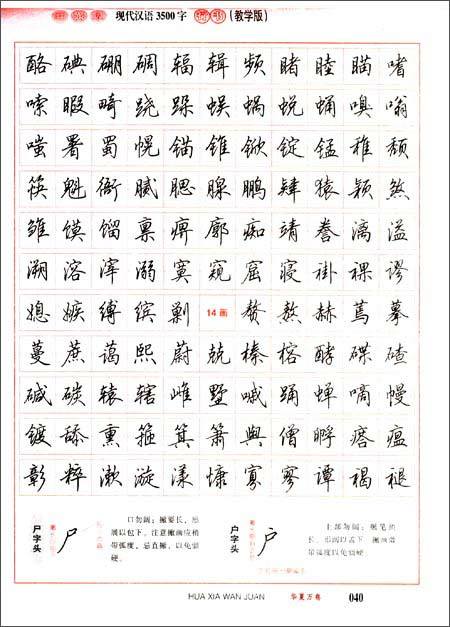 田英章 现代汉语3500字 行书 (教学版)
酪 碘 硼 碉 辐 辑 频 睹 睦 瞄 嗜
嗦 暇 畸 跷 跺 蜈 蜗 蜕 蛹 嗅 嗡
嗤 署 蜀 幌 锚 锥 锨 锭 锰 稚 颓
筷 魁 衙 腻 腮 腺 鹏 肄 猿 颖 煞
雏 馍 馏 禀 痹 廓 痴 靖 誊 漓 溢
溯 溶 滓 溺 寞 窥 窟 寝 褂 裸 谬
媳 嫉 缚 缤 剿 14画 赘 熬 赫 蔫 摹
蔓 蔗 蔼 熙 蔚 兢 榛 榕 酵 碟 碴
碱 碳 辕 辖 雌 墅 嘁 踊 蝉 嘀 幔
镀 舔 熏 箍 箕 箫 舆 僧 孵 瘩 瘟
彰 粹 漱 漩 漾 慷 寡 寥 谭 褐 褪
尸字头
尸
口勿阔；撇要长，形
展以包下。注意撇画应稍
带弧度，忌直撇，以免弱
硬。
户字头
户
上部勿阔；撇笔稍
长，形展以盖下，撇画带
带弧度以免弱硬。
HUA XIA WAN JUAN 华夏万卷 040